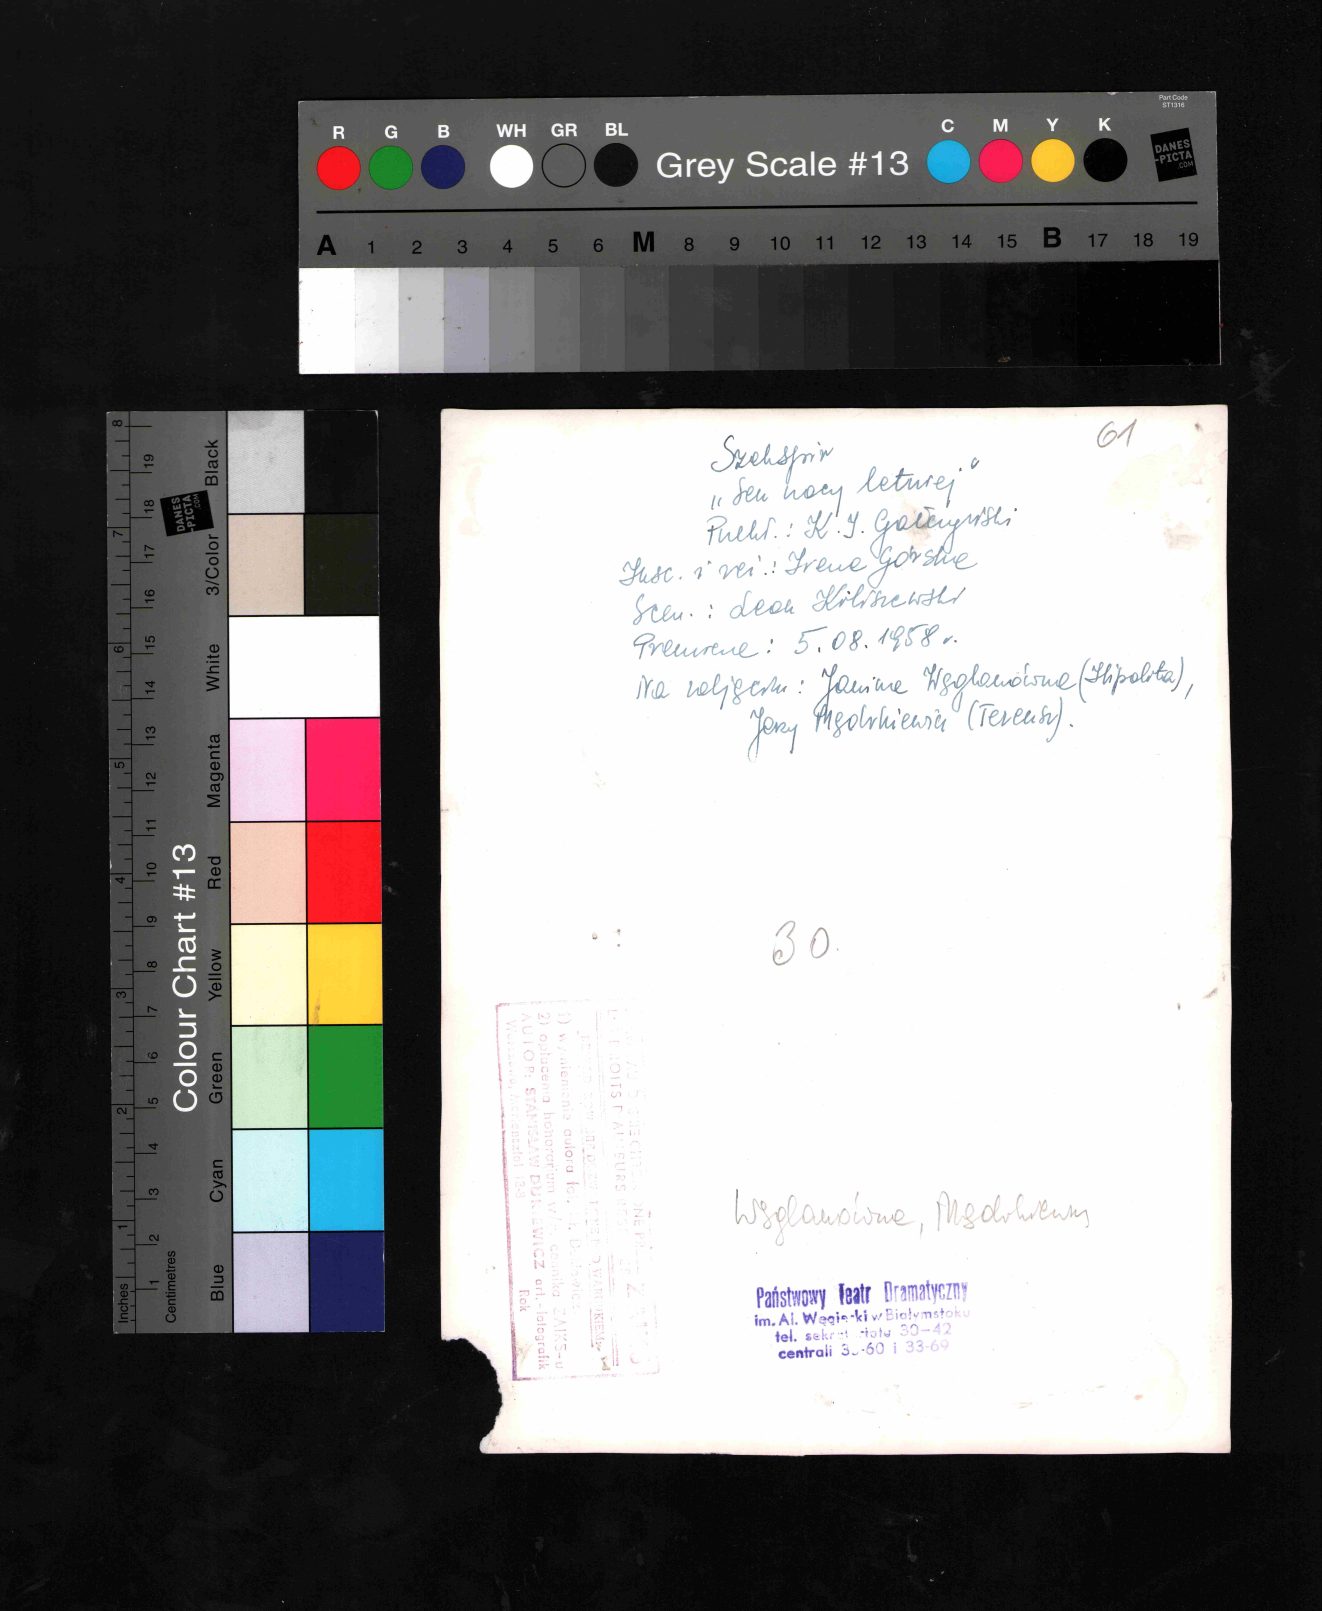 Part Code
ST1316
R G B WH GR BL
Grey Scale #13
C M Y K
DANES
-PICTA
.COM
A 1 2 3 4 5 6 M 8 9 10 11 12 13 14 15 B 17 18 19
Colour Chart #13
Inches 1 2 3 4 5 6 7 8
Centimetres 1 2 3 4 5 6 7 8 9 10 11 12 13 14 15 16 17 18 19
Black
3/Color
White
Magenta
Red
Yellow
Green
Cyan
Blue
DANES
-PICTA
.COM
61
Szekspir
„Sen nocy letniej"
Przekł.: K. I. Gałczyński
Insc. i reż.: Irena Górska
Scen.:
Premiera: 5.08.1958 r.
Na zdjęciu: Janina Węglanówna (Hipolita),
Jerzy (Tezeusz).
30
1) wymienienia autora
2) opłacenia honorarium w cennika ZAIKS-u
AUTOR: STANISŁAW art.-fotografik
Rok
Węglanówna,
Państwowy Teatr Dramatyczny
im. Al. Węgierki w Białymstoku
tel. 30-42
centrali i 33-69